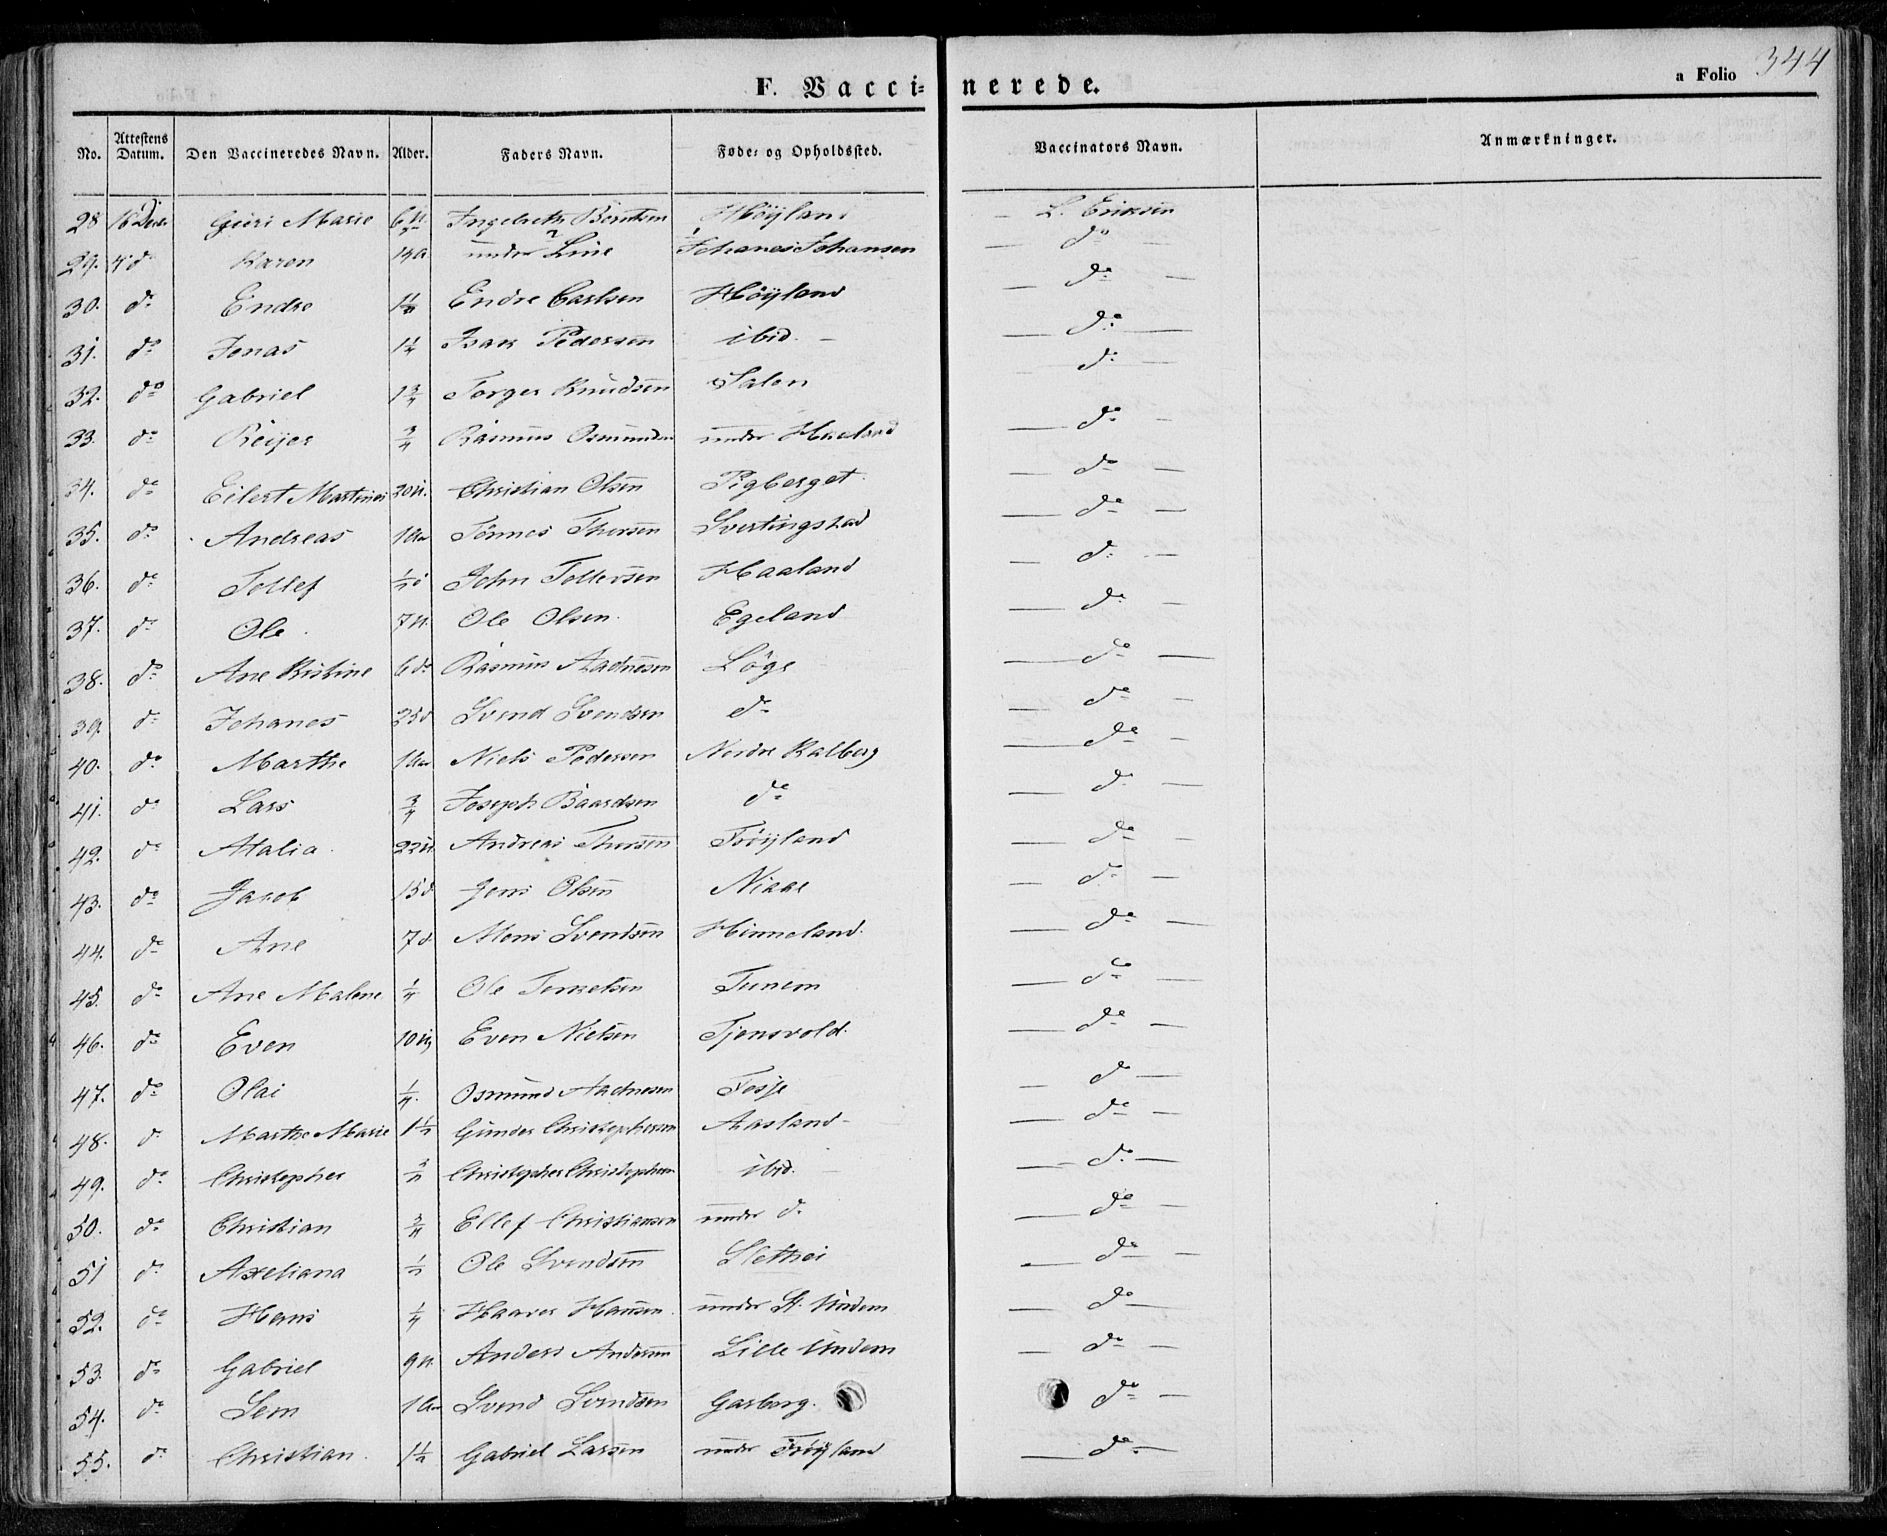 344
F. Vaccinerede.
a Folio
No. Attestens Datum. Den Vaccineredes Navn. Alder. Faders Navn. Føde- og Opholdssted. Vaccinators Navn. Anmærkninger.
28 Marie Høyland L. Eriksen
29. Karen under Line Johanes Johansen do
30. do Endre Endre Carlsen Høyland do
31. do Jonas 1¼ Isak Pedersen ibid. do
32. do Gabriel 1¾ Torger Knudsen do
33. do Reijer ¾ Rasmus Osmundsen under Haaland do
34. do Eilert Martinus Christian Olsen Pigberget do
35. do Andreas Tønnes Thorsen Svertingstad do
36. do Tollef John Tollefsen Haaland do
37. do Ole Ole Olsen Egeland do
38. do Ane Kistine 6 do Rasmus Aadnesen Løge do
39. do Johanes 25 d Svend Svendsen do do
40. do Marthe Niels Pedersen Nordre Kalberg do
41. do Lars ¾ Joseph Baardsen do do
42. do Malia Andreas Thorsen Frøyland do
43. do Jacob 15 d Jens Olsen Niaae do
44. do Ane 7 d. Mons Svendsen Hinneland do
45. do Ane Malene ¼ Ole Tunem do
46. do Even Even Nielsen Tjensvold do
47. do Olai ¼ Osmund Aadnesen Fosse do
48. do Marthe Marie 1½ Gunder Christophersen Aasland do
49. do Christopher Christopher Christophersen ibid. do
50. do Christian ¾ Ellef Christiansen under do do
51 do Axeliana ½ Ole Svendsen Slethei do
52. do Hans ¼ Haaver Hansen under St. Undem do
53. do Gabriel Anders Andersen Lille Undem do
54. do Sem Svend Svendsen Garborg. do
55. do Christian Gabriel Larsen under Frøyland do